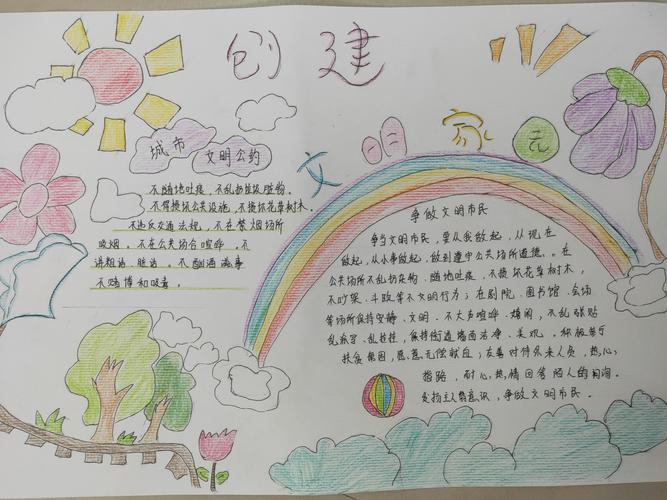 创建
文明家园
城市
文明公约
不随地吐痰，不乱扔垃圾废物。
不得损坏公共设施，不损坏花草树木。
不违反交通法规，不在禁烟场所
吸烟。不在公共场合喧哗，不
讲粗话、脏话。不酗酒滋事
不赌博和吸毒。
争做文明市民
争当文明市民，要从我做起，从现在
做起，从小事做起，做到遵守公共场所道德。在
公共场所不乱扔杂物、随地吐痰，不损坏花草树木，
不吵架、斗殴等不文明行为；在剧院、图书馆、会场
等场所保持安静、文明，不大声喧哗、嬉闹，不乱张贴
乱涂写、乱挂挂，保持街道墙面洁净、美观。积极参与
扶贫帮困，愿意无偿献血；友善对待外来人员，热心
指路，耐心热情回答陌人的询问。
发扬主人翁意识，争做文明市民。